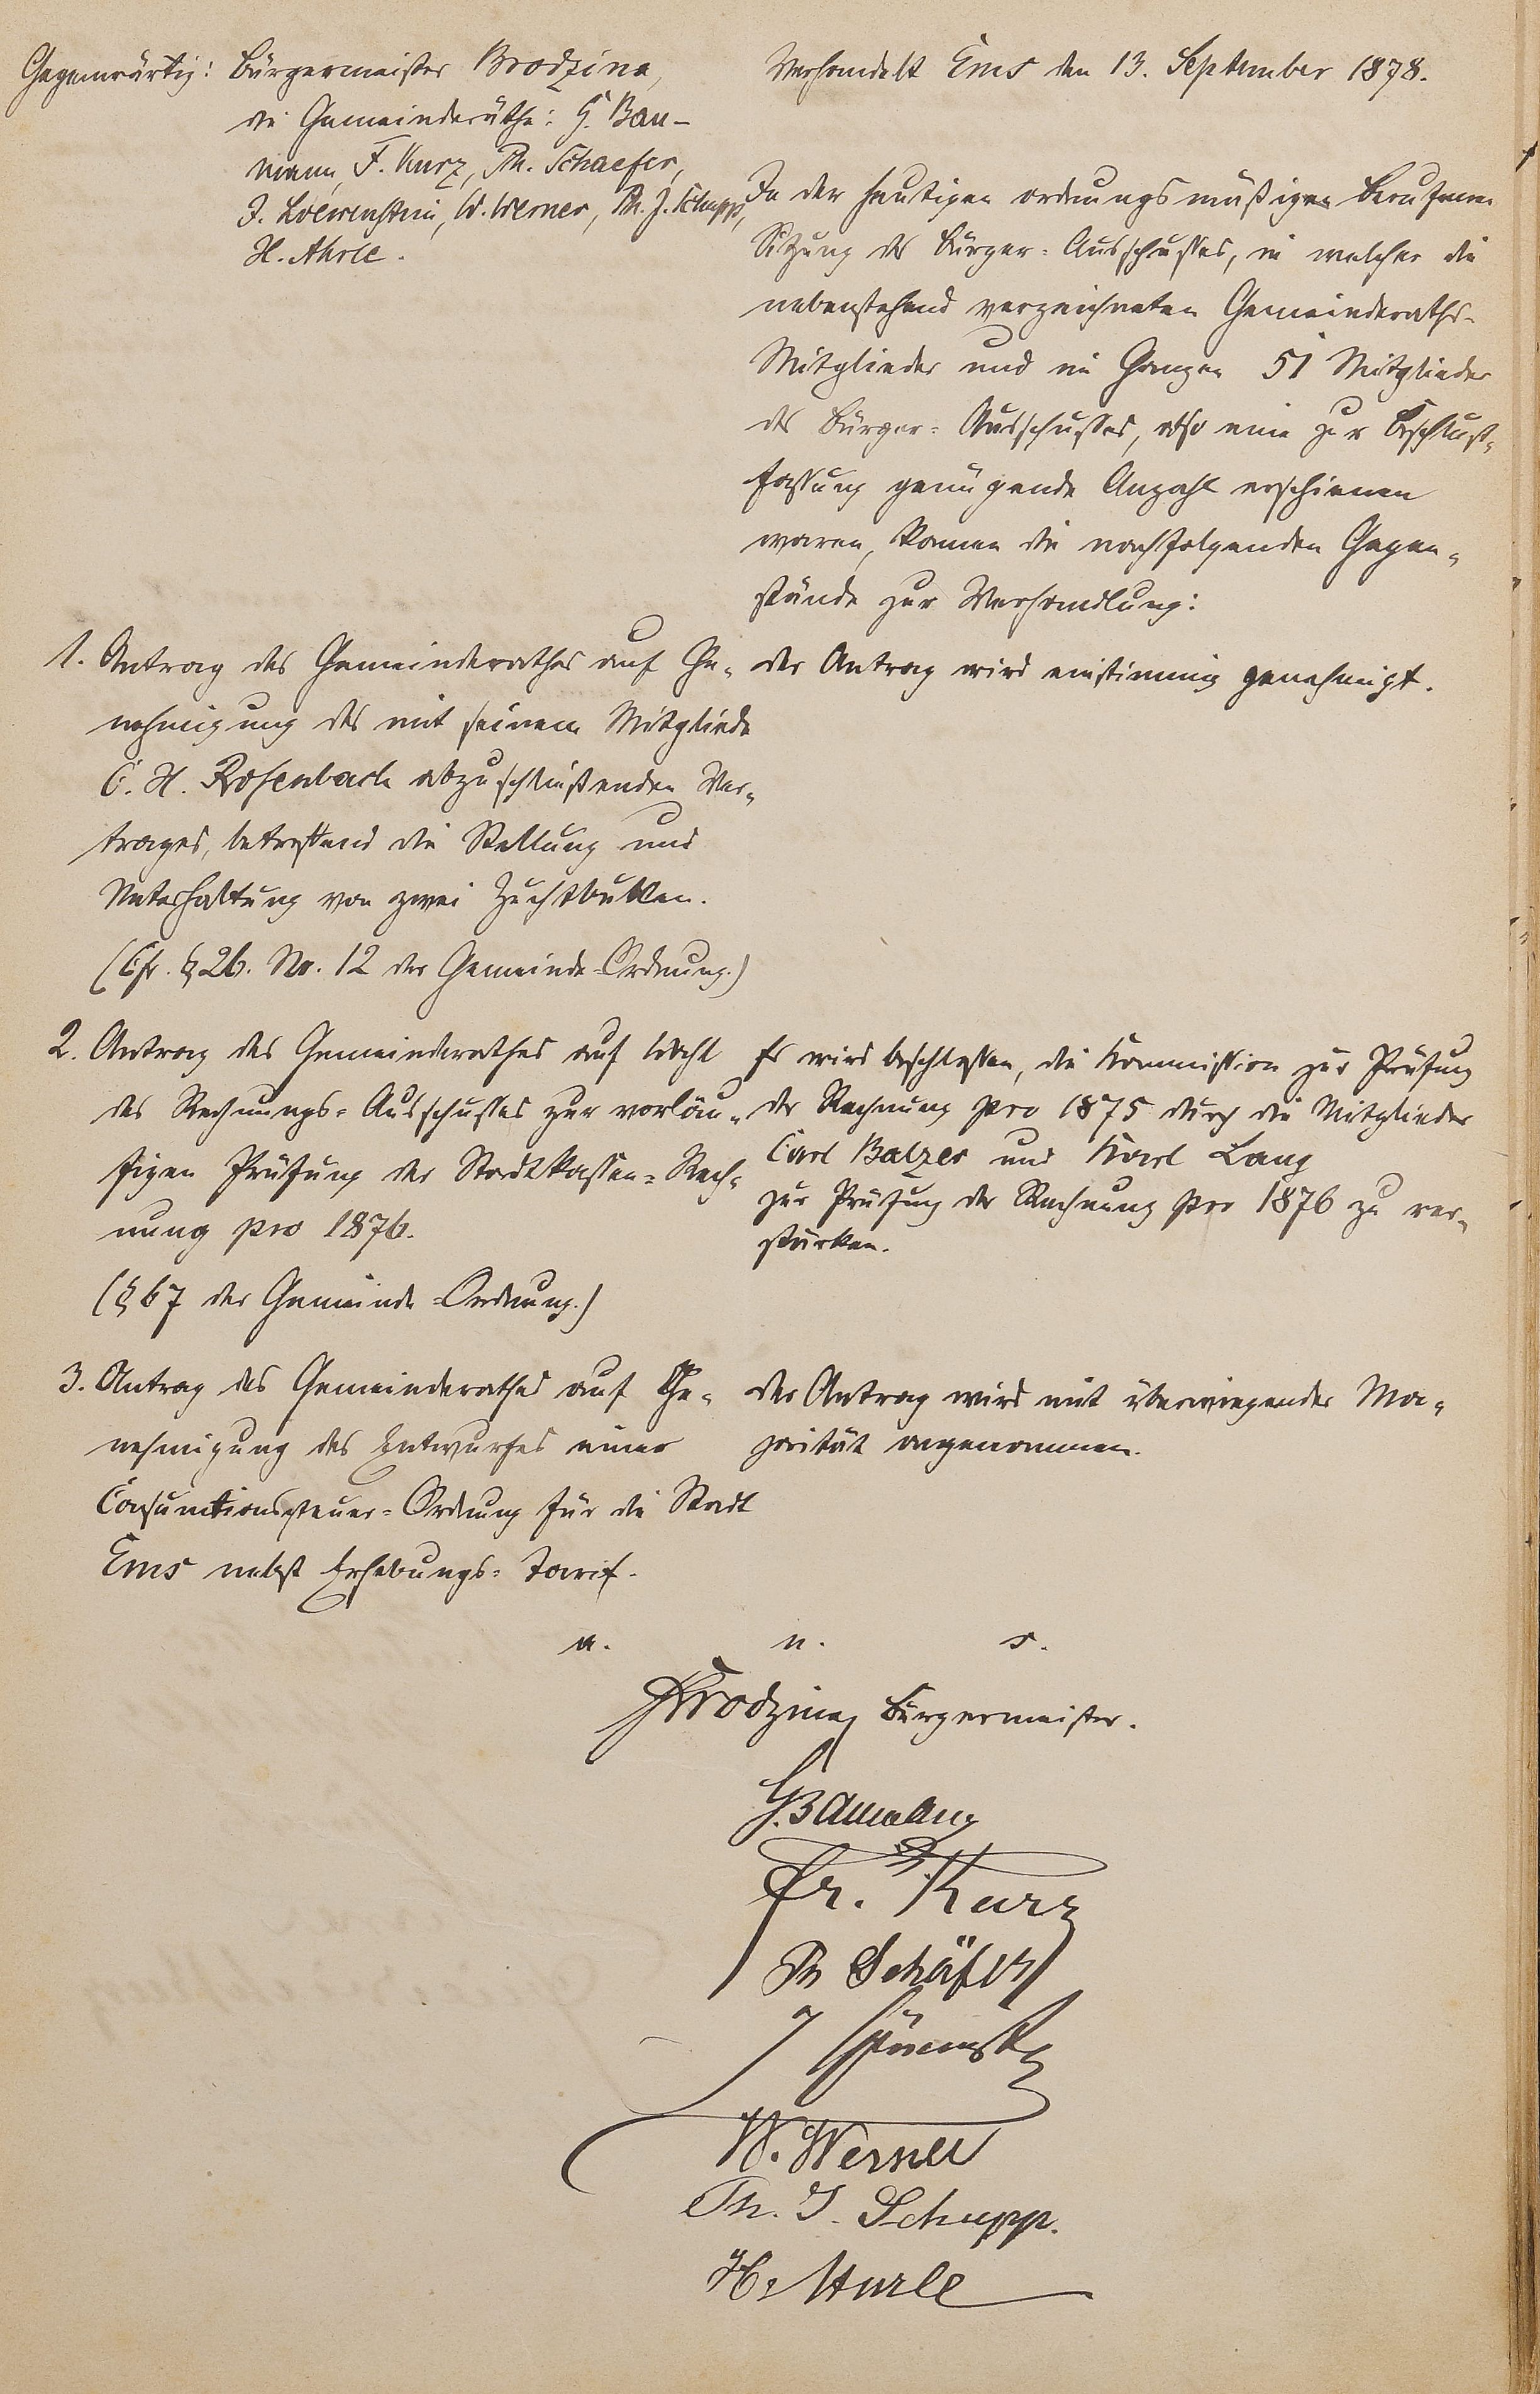 Gegenwärtig: Bürgermeister Brodzina,
die Gemeinderäthe: G. Bau-
mann, F. Kurz, Ph. Schaefer,
J. Loewenstein, W. Werner, Ph. J. Schupp,
H. Ahrle.
Verhandelt Ems den 13. September 1878.
In der heutigen ordnungsmäßigen berufenen
Sitzung des Bürger-Ausschusses, in welcher die
nebenstehend verzeichneten Gemeinderaths-
Mitglieder und im Ganzen 51 Mitglieder
des Bürger-Ausschusses, also eine zur Beschluß-
fassung genügende Anzahl erschienen
waren, kamen die nachfolgenden Gegen-
stände zur Verhandlung:
1. Antrag des Gemeinderathes auf Ge-
nehmigung des mit seinem Mitgliede
C. H. Rosenbach abzuschließenden Ver-
trages, betreffend die Stellung und
Unterhaltung von zwei Zuchtbullen.
(Cfr. § 26. No. 12 der Gemeinde-Ordnung.)
der Antrag wird einstimmig genehmigt.
2. Antrag des Gemeinderathes auf Wahl
des Rechnungs-Ausschusses zur vorläu-
figen Prüfung der Stadtkassen-Rech-
nung pro 1876.
(§ 67 der Gemeinde-Ordnung.)
Es wird beschlossen, die Kommission zur Prüfung
der Rechnung pro 1875 durch die Mitglieder
Carl Balzer und Karl Lang
zur Prüfung der Rechnung pro 1876 zu ver-
stärken.
3. Antrag des Gemeinderathes auf Ge-
nehmigung des Entwurfes einer
Consumtionssteuer-Ordnung für die Stadt
Ems nebst Erhebungs-Tarif.
der Antrag wird mit überwiegender Ma-
jorität angenommen.
a. u. s.
Brodzina, Bürgermeister.
G. Baumann
Fr. Kurz
Ph Schäfer
J
W. Werner
Ph. J. Schupp.
H. Ahrle